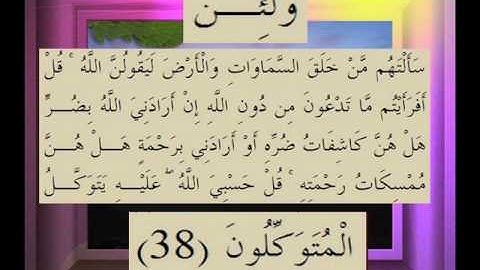 وَلَئِــن
سَأَلْتَهُم مَّنْ خَلَقَ السَّمَاوَاتِ وَالْأَرْضَ لَيَقُولُنَّ اللَّهُ ۚ قُلْ
أَفَرَأَيْتُم مَّا تَدْعُونَ مِن دُونِ اللَّهِ إِنْ أَرَادَنِيَ اللَّهُ بِضُــرٍّ
هَلْ هُنَّ كَاشِفَاتُ ضُرِّهِ أَوْ أَرَادَنِي بِرَحْمَةٍ هَــلْ هُــنَّ
مُمْسِكَاتُ رَحْمَتِهِ ۚ قُلْ حَسْبِيَ اللَّهُ ۖ عَلَيْــهِ يَتَوَكَّــلُ
الْمُتَوَكِّلُونَ (38)